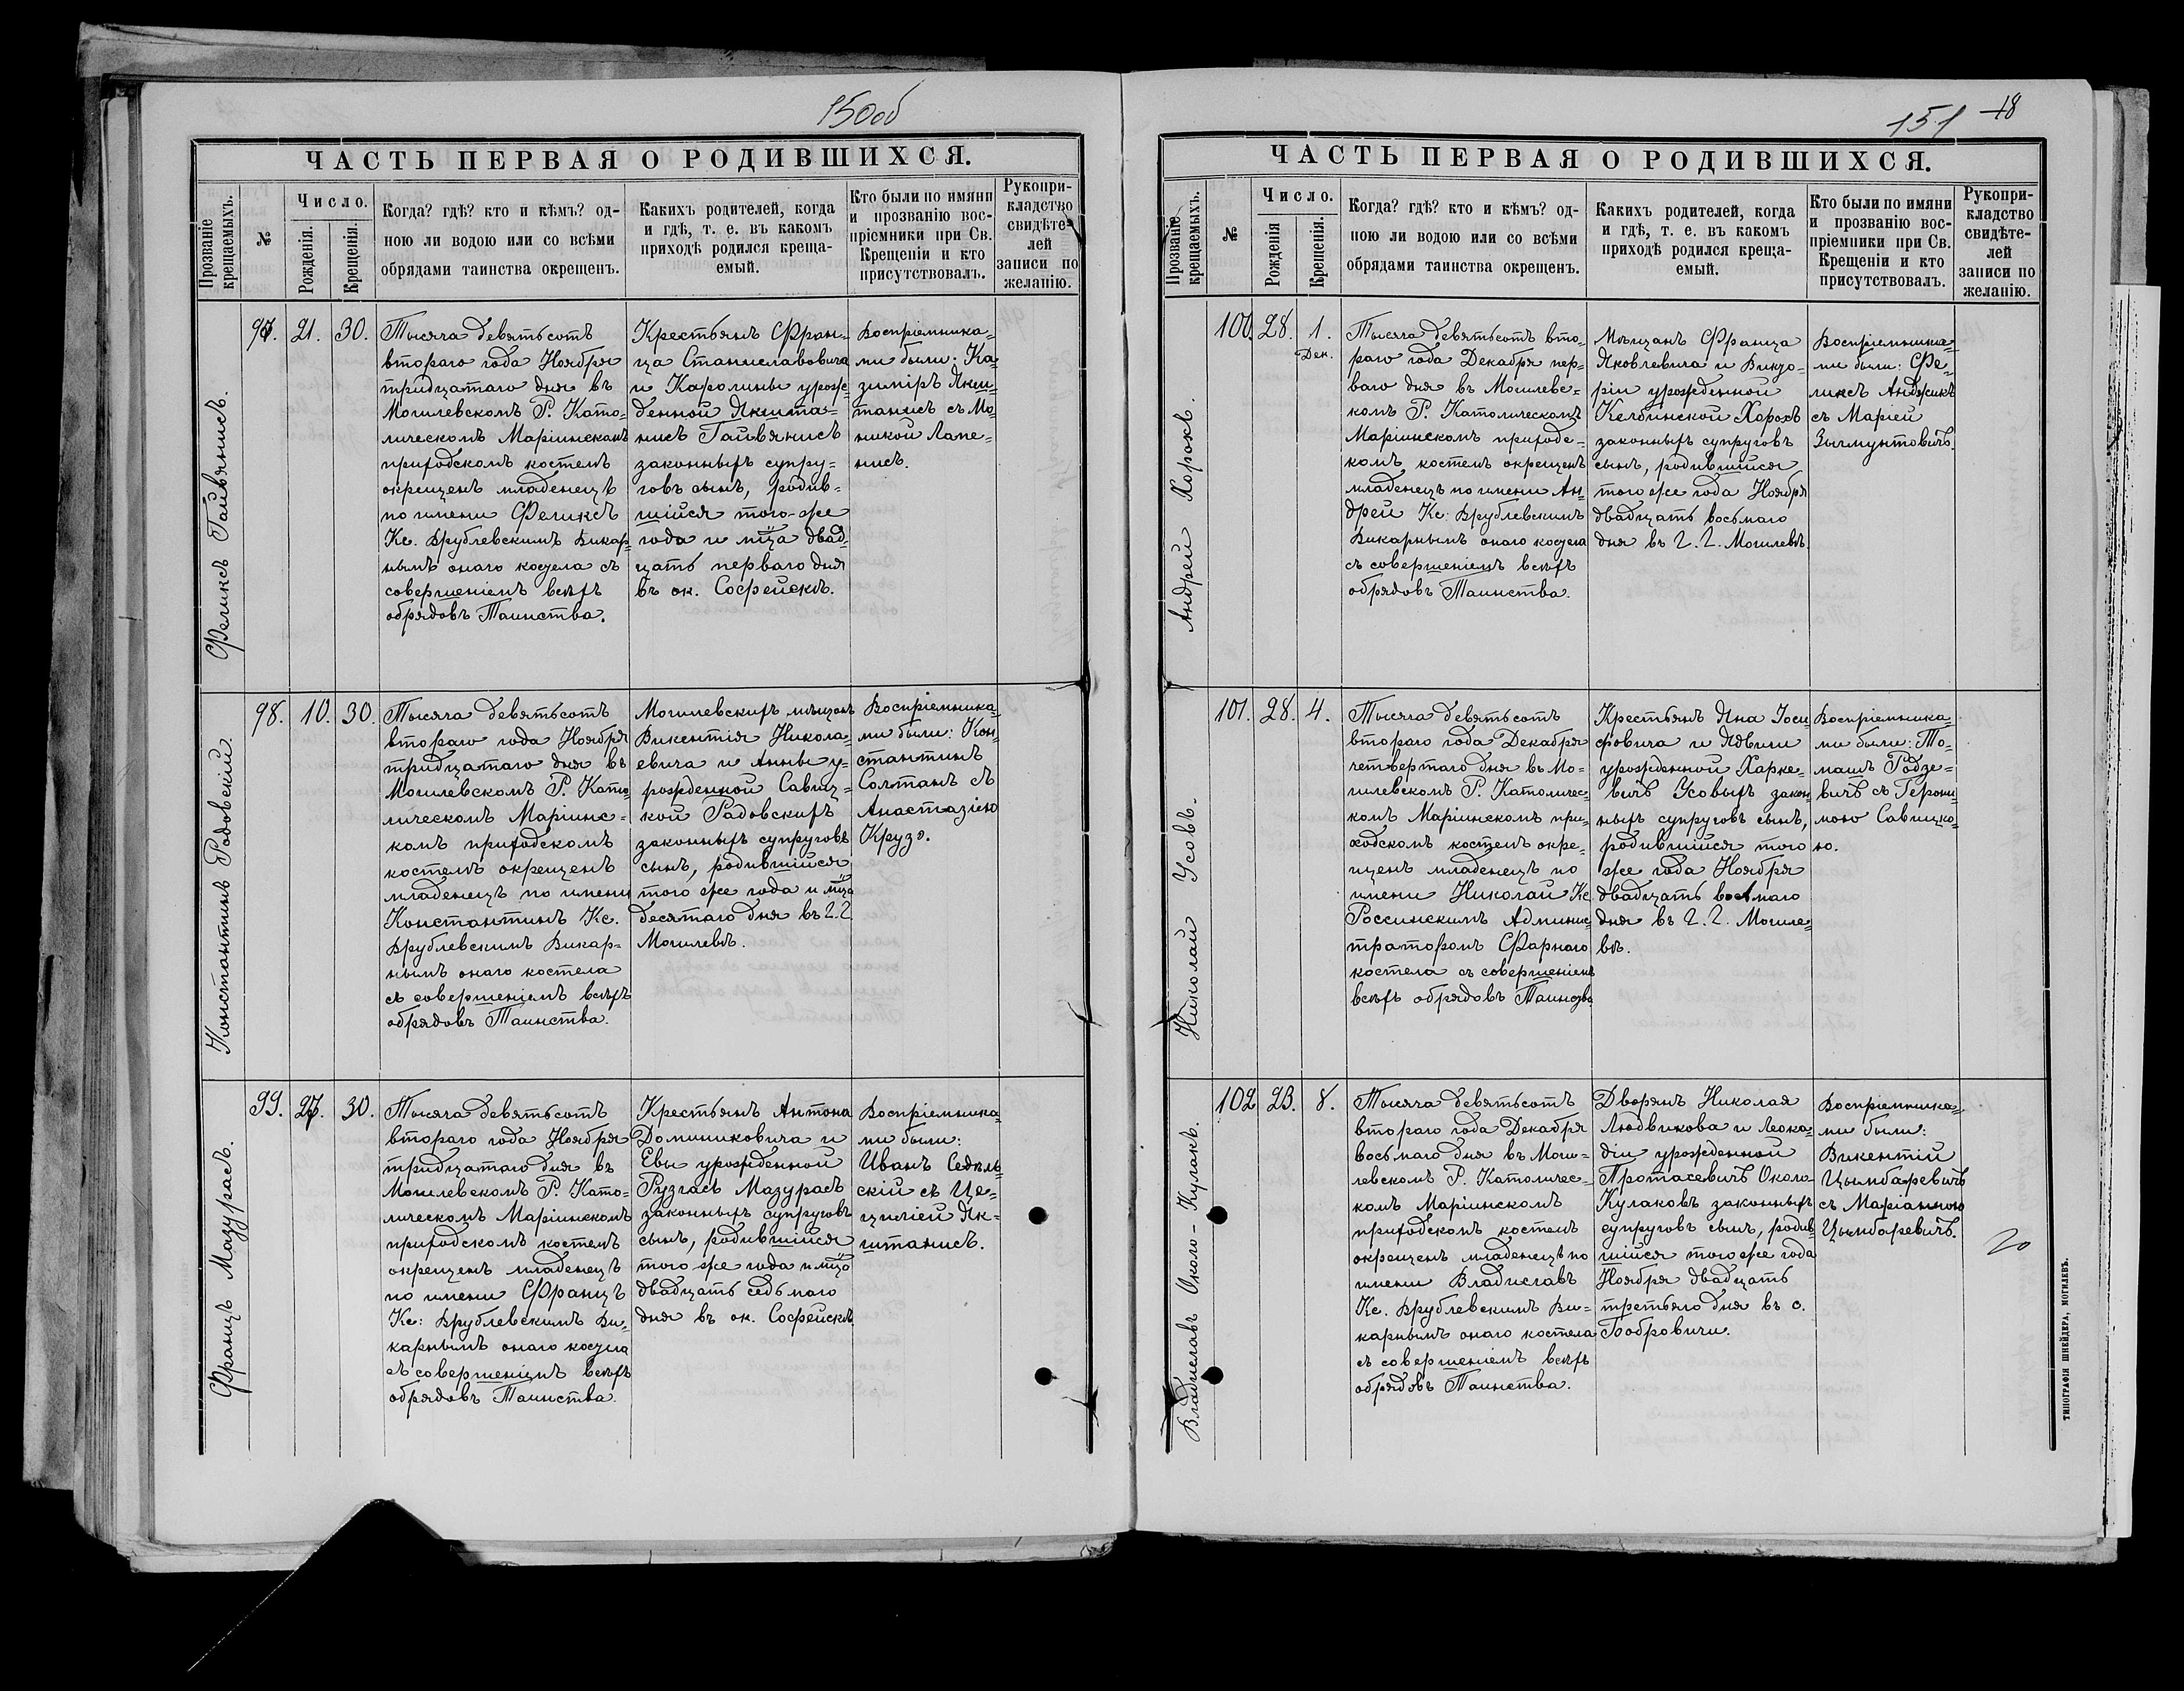 150об
ЧАСТЬ ПЕРВАЯ О РОДИВШИХСЯ.
Прозваніе крещаемыхъ.
№
Число.
Рожденія.
Крещенія.
Когда? гдѣ? кто и кѣмъ? од-
ною ли водою или со всѣми
обрядами таинства окрещенъ.
Какихъ родителей, когда
и гдѣ, т. е. въ какомъ
приходѣ родился креща-
емый.
Кто были по имяни
и прозванію вос-
пріемники при Св.
Крещеніи и кто
присутствовалъ.
Рукопри-
кладство
свидѣте-
лей
записи по
желанію.
Феликсъ Гайвянисъ.
97. 21. 30.
Тысяча девятьсотъ
втораго года Ноября
тридцатаго дня въ
Могилевскомъ Р. Като-
лическомъ Маріинскомъ
приходскомъ костелѣ
окрещенъ младенецъ
по имени Феликсъ
Кс. Врублевскимъ Викар-
нымъ онаго костела съ
совершеніемъ всѣхъ
обрядовъ Таинства.
Крестьянъ Фран-
ца Станиславовича
и Каролины урож-
денной Якшта-
нисъ Гайвянисъ
законныхъ супру-
говъ сынъ, родив-
шійся того-же
года и мѣца двад-
цать перваго дня
въ ок. Софейскѣ.
Воспріемника-
ми были: Ка-
зиміръ Якш-
танисъ съ Мо-
никой Лапе-
нисъ.
Константинъ Радовскій.
98. 10. 30.
Тысяча девятьсотъ
втораго года Ноября
тридцатаго дня въ
Могилевскомъ Р. Като-
лическомъ Маріинс-
комъ приходскомъ
костелѣ окрещенъ
младенецъ по имени
Константинъ Кс.
Врублевскимъ Викар-
нымъ онаго костела
съ совершеніемъ всѣхъ
обрядовъ Таинства.
Могилевскихъ мѣщанъ
Викентія Никола-
евича и Анны у-
рожденной Савиц-
кой Радовскихъ
законныхъ супруговъ
сынъ, родившійся
того же года и мѣца
десятаго дня въ г. г.
Могилевѣ.
Воспріемника-
ми были: Кон-
стантинъ
Солтанъ съ
Анастазіею
Крузэ.
Францъ Мазурасъ.
99. 27. 30.
Тысяча девятьсотъ
втораго года Ноября
тридцатаго дня въ
Могилевскомъ Р. Като-
лическомъ Маріинскомъ
приходскомъ костелѣ
окрещенъ младенецъ
по имени Францъ
Кс: Врублевскимъ Ви-
карнымъ онаго костела
съ совершеніемъ всѣхъ
обрядовъ Таинства.
Крестьянъ Антона
Доминиковича и
Евы урожденной
Рузгасъ Мазурасъ
законныхъ супруговъ
сынъ, родившійся
того же года и мѣца
двадцать седьмаго
дня въ ок. Софейскѣ.
Воспріемника-
ми были:
Иванъ Седль-
скій съ Це-
циліей Як-
штанисъ.
151 18
ЧАСТЬ ПЕРВАЯ О РОДИВШИХСЯ.
Прозваніе крещаемыхъ.
№
Число.
Рожденія
Крещенія.
Когда? гдѣ? кто и кѣмъ? од-
ною ли водою или со всѣми
обрядами таинства окрещенъ.
Какихъ родителей, когда
и гдѣ, т. е. въ какомъ
приходѣ родился креща-
емый.
Кто были по имяни
и прозванію вос-
пріемники при Св.
Крещеніи и кто
присутствовалъ.
Рукопри-
кладство
свидѣте-
лей
записи по
желанію.
Андрей Хорохъ.
100. 28. 1.
Дек.
Тысяча девятьсотъ вто-
раго года Декабря пер-
ваго дня въ Могилевс-
комъ Р. Католическомъ
Маріинскомъ приходс-
комъ костелѣ окрещенъ
младенецъ по имени Ан-
дрей Кс: Врублевскимъ
Викарнымъ онаго костела
съ совершеніемъ всѣхъ
обрядовъ Таинства.
Мѣщанъ Франца
Яковлевича и Викто-
ріи урожденной
Келбинской Хорохъ
законныхъ супруговъ
сынъ, родившійся
того же года Ноября
двадцать восьмаго
дня въ г. г. Могилевѣ.
Воспріемника-
ми были: Фе-
ликсъ Анджикъ
съ Маріей
Зыгмунтовичъ.
Николай Усовъ.
101. 28. 4.
Тысяча девятьсотъ
втораго года Декабря
четвертаго дня въ Мо-
гилевскомъ Р. Католичес-
комъ Маріинскомъ при-
ходскомъ костелѣ окре-
щенъ младенецъ по
имени Николай Кс
Россинскимъ Админис-
траторомъ Фарнаго
костела съ совершеніемъ
всѣхъ обрядовъ Таинства
Крестьянъ Яна Іоси-
фовича и Ядвиги
урожденной Харке-
вичъ Усовыхъ закон-
ныхъ супруговъ сынъ,
родившійся того
же года Ноября
двадцать восьмаго
дня въ г. г. Могиле-
вѣ.
Воспріемника-
ми были: То-
машъ Родзе-
вичъ съ Герони-
мою Савицко-
ю.
Владиславъ Около-Кулакъ.
102 23. 8.
Тысяча девятьсотъ
втораго года Декабря
восьмаго дня въ Моги-
левскомъ Р. Католичес-
комъ Маріинскомъ
приходскомъ костелѣ
окрещенъ младенецъ по
имени Владиславъ
Кс. Врублевскимъ Ви-
карнымъ онаго костела
съ совершеніемъ всѣхъ
обрядовъ Таинства.
Дворянъ Николая
Людвикова и Леока-
діи урожденной
Протасевичъ Около-
Кулаковъ законныхъ
супруговъ сынъ, родив-
шійся того же года
Ноября двадцать
третьяго дня въ о.
Бобровичи.
Воспріемника-
ми были:
Викентій
Цымбаревичъ
съ Маріанною
Цымбаревичъ.
20
ТИПОГРАФІЯ ШНЕЙДЕРА, МОГИЛЕВЪ.